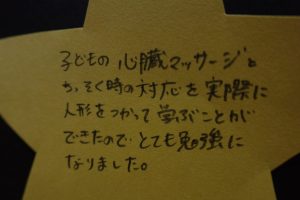 子どもの心臓マッサージと
ちっそく時の対応を実際に
人形をつかって学ぶことが
できたので とても勉強に
なりました。